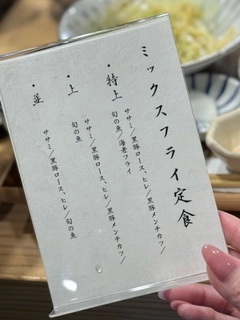 ミックスフライ定食
・特上
ササミ/黒豚ロース、ヒレ/黒豚メンチカツ/
旬の魚/海老フライ
・上
ササミ/黒豚ロース、ヒレ/黒豚メンチカツ/
旬の魚
・並
ササミ/黒豚ロース、ヒレ/旬の魚